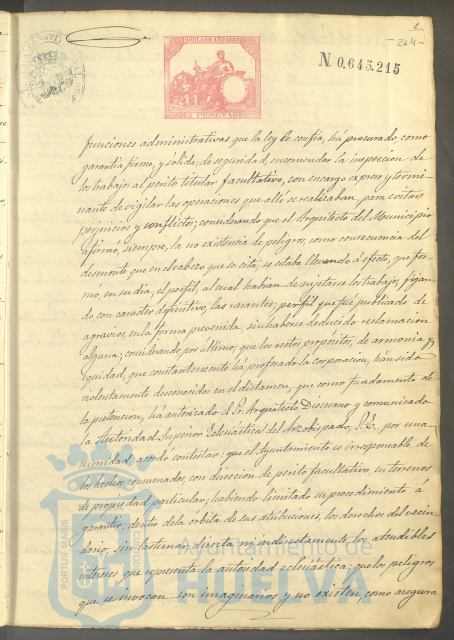 6
204
N. 0.645.215
3 PESETAS
funciones administrativas que la ley le confia, há procurado, como
garantia firme, y solida, de seguridad, encomendar la inspeccion de
los trabajos al perito titular facultativo, con encargo expreso y termi-
nante de vigilar las operaciones que alli se realizaban, para evitar
perjuicios y conflictos; considerando que el Arquitecto del Municipio
afirmó, siempre, la no existencia de peligro, como consecuencia del
desmonte que en el cabezo que se cita, se estaba llevando á efecto, que for-
mó, en su dia, el perfil, al cual habian de sujetarse los trabajos, fijan-
do con caracter definitivo, las rasantes; perfil que fue publicado de
agravios, en la forma prevenida, sin haberse deducido reclamacion
alguna; considerando, por último, que los rectos propósitos, de armonia y
equidad, que constantemente há profesado la corporacion, hán sido
violentamente desconocidos en el dictamen, que como fundamento de
la pretencion, há autorizado el Sr. Arquitecto Diocesano y comunicado
la Autoridad Superior Eclesiástica del Arzobispado, S.E., por una-
nimidad acordó contestar: que el Ayuntamiento es irresponsable de
los hechos consumados, con direccion de perito facultativo, en terrenos
de propiedad particular; habiendo limitado su procedimiento á
garantir, dentro de la orbita de sus atribuciones, los derechos del vecin-
dario, sin lastimar, directa ni indirectamente, los atendibles
intereses, que representa la autoridad eclesiástica; que los peligros
que se invocan son imaginarios y no existen, como asegura
PORTUS MARIS
Ayuntamiento de
HUELVA